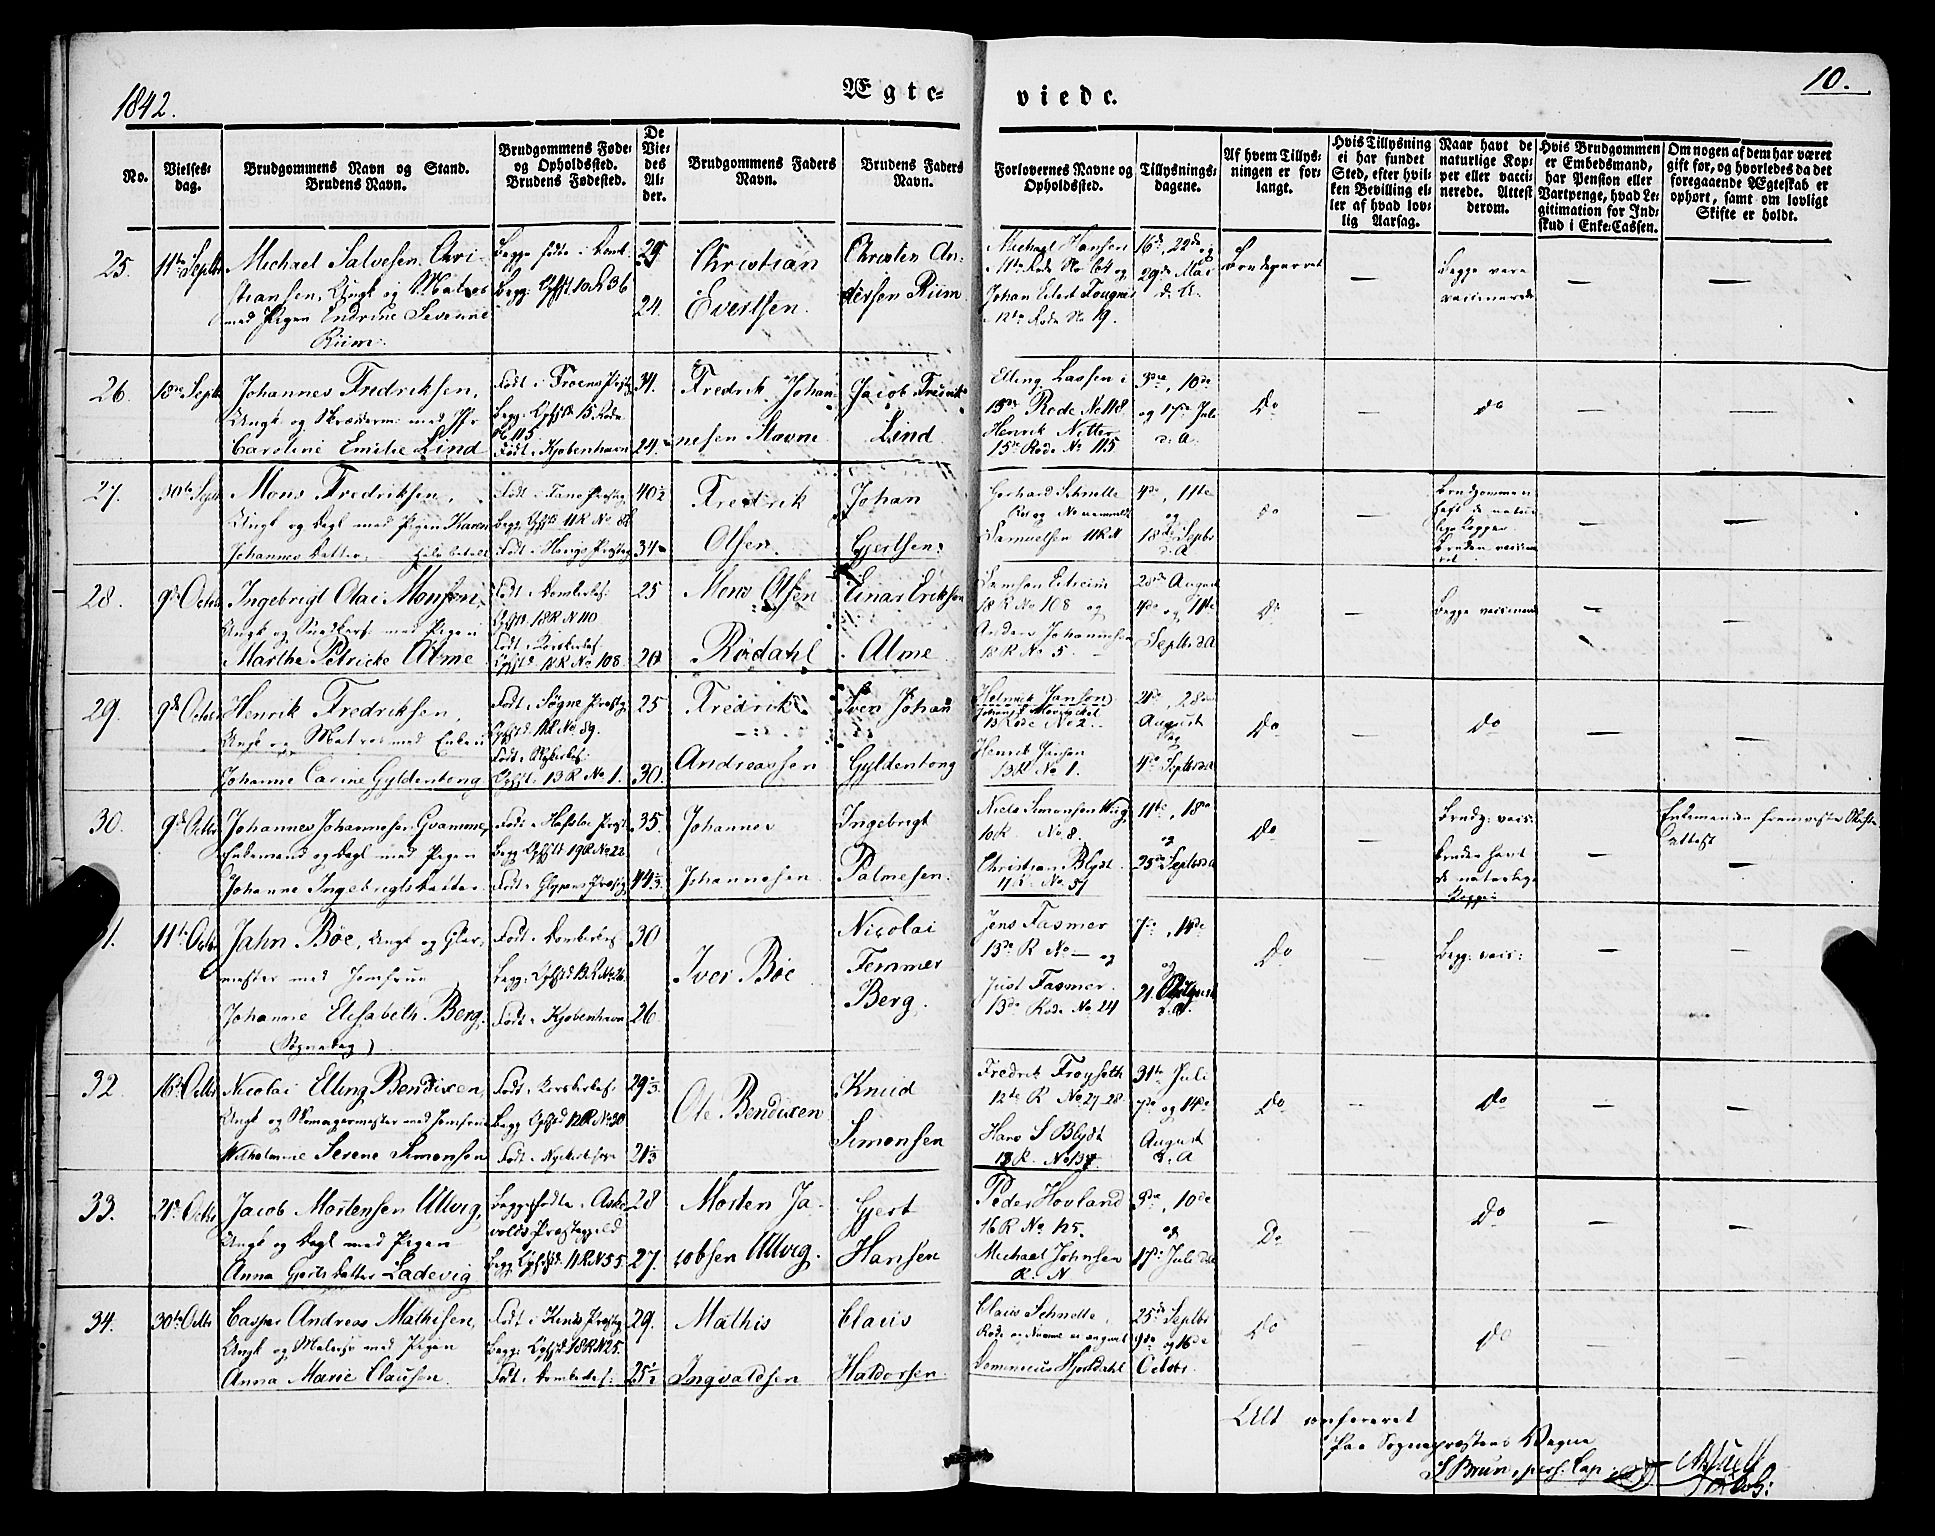 1842.
Ægte-
viede.
10.
No.
Vielses-
dag.
Brudgommens Navn og Stand.
Brudens Navn.
Brudgommens Føde-
og Opholdssted.
Brudens Fødested.
De
Vie-
des
Al-
der.
Brudgommens Faders
Navn.
Brudens Faders
Navn.
Forlovernes Navne og
Opholdssted.
Tillysnings-
dagene.
Af hvem Tillys-
ningen er for-
langt.
Hvis Tillysning
ei har fundet
Sted, efter hvil-
ken Bevilling el-
ler af hvad lov-
lig Aarsag.
Naar havt de
naturlige Kop-
per eller vacci-
nerede. Attest
derom.
Hvis Brudgommen
er Embedsmand,
har Pension eller
Vartpenge, hvad Le-
gitimation for Ind-
skud i Enke-Cassen.
Om nogen af dem har været
gift før, og hvorledes da det
foregaaende Ægteskab er
ophørt, samt om lovligt
Skifte er holdt.
25.
11te Septbr
Michael Salvesen Chri-
stiansen, Ungk og Matros
med Pigen Endrine Severine
Riim.
24.
Christian
Evertsen.
Christen An-
dersen Riim
Michael Hansen
11te Rode No 64 og
12te Rode No 19.
16de, 22de og
29de Mai
d. A.
Brudeparret
Begge ere
vaccinerede
26.
18de Septbr
Johannes Fredriksen,
Ungk og Skrædderm. med Jfr
Caroline Emilie Lind
15 Rode
No 115
Født i Kjøbenhavn
34.
24
Fredrik Johan-
nesen Stavne
Jacob Fredrik
Lind
Elling Lassen i
15de Rode No 118
Henrik Nitter
15de Rode No 115
3die, 10de
og 17de Juli
d. A.
Do
do
27.
30te Septbr
Mons Fredriksen,
Ungk og Dagl med Pigen Karen
Johannes Datter,
40½
34
Fredrik
Olsen.
Johan
Gjertsen.
Gerhard Schnelle
Samuelsen 11 R N
4de, 11te
og
18de Septbr
d. A
do
Brudgommen
haft de natur
lige Kopper
Bruden vaccine
ret
28.
9de Octobr
Ingebrigt Olai Monsen,
Ungk og Snedkers. med Pigen
Marthe Petricke Alme
Født i Domkirkes:
18 R N 110
Født i Korskirkes:
18 R No 108
25
Mons Olsen
Rørdahl
Einar Eriksen
Alme
18 R No 108 og
Anders Johannesen
18 R No 5.
28de August
4de og 11te
Septbr d. A
Do
Begge vaccinerede
29.
9de Octobr
Henrik Fredriksen,
Ungk og Matros med Enken
Johanne Carine Gyldentong
Født i Søgne Præstg
Født i
13 R No 1.
25
30.
Fredrik
Andreassen
Sven Johan
Gyldentong
Henrik Jansen
13 Rode No 2.
Henrik Jansen
13 R No 1.
21de, 28de
August
og
4de Septbr d A
Do
Do
30.
9de Octbr
Johannes Johannesen Gvamme,
Enkemand og Dagl med Pigen
Johanne Ingebrigtsdatter
Født i Hafslo Præstg
Begg Ophst 19 R No 22
35.
44½
Johannes
Johannesen
Ingebrigt
Palmesen.
Niels Simonsen Wiig
10 R No 8.
Christian Blydt
11 R No 57
11te, 18de
og
25de Septbr d A
Do
Brudg: vacc:
Bruden havt
de naturlige
Kopper
Enkemanden fremviste Skifte
attest
31.
11te Octbr
Jahn Bøe, Ungk og Glar-
mester med Jomfrue
Johanne Elisabeth Berg.
(Søgnedag)
Født i Domkirkes
Født i Kjøbenhavn
30
26
Iver Bøe
Nicolai
Temmer
Berg.
Jens Fasmer
13de R No — og
Just Fasmer.
13de Rode No 24
7de, 14de
og
21 August
d. A.
Do
Begg: vacc:
32.
16de Octbr
Nicolai Elling Bendixen,
Ungk og Skomagermester med Jomfrue
Wilhelmine Serene Simonsen
Født i Korskirkes
Begg Ophst 12 R No 30
Født i Nykirkesogn
Ole Bendixen
Knud
Simonsen
Fredrik Frøyseth
12te R No 27-28
Hans S Blydt
13 R.
31te Juli
7de og 14de
August
d. A
Do
Do
33.
21de Octbr
Jacob Mortensen Ulvig,
Ungk og Dagl med Pigen
Anna Gjertsdatter Ladevig
Begge fødte i Aske-
volds Præstegjeld
Begg Ophst 11 R N 55
28
27
Morten Ja-
cobsen Ulvig.
Gjert
Hansen
Peder Hovland
16 R No 125.
Michael Johnsen
R. N
3die, 10de
og
17de Juli d A
Do
Do
34.
30te Octbr
Casper Andreas Mathisen,
Ungk og Matros med Pigen
Anna Marie Clausen.
Født i Kinds Præstg
Begg: Ophst 18 R N 25.
Født i Domkirkes:
29.
25½
Mathis
Ingvaldsen
Claus
Haldorsen
Claus Schnelle
Dominicus Hjeldahl
25de Septbr
9de og 16de
Octobr
Do
Do
Alt confereret
Paa Sognepræstens Vegne
S Brun, pers. Cap: